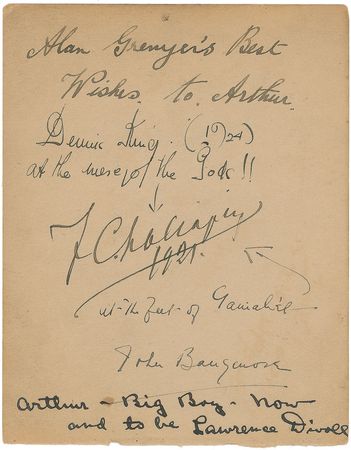 Alan Grenyer's Best
Wishes. to Arthur.
Dennis King. (1924)
at the mercy of the Gods!!
F Chaliapin
1921.
at the feet of Gamaliel
John
Arthur - Big Boy - Now
and to be Lawrence Divoll